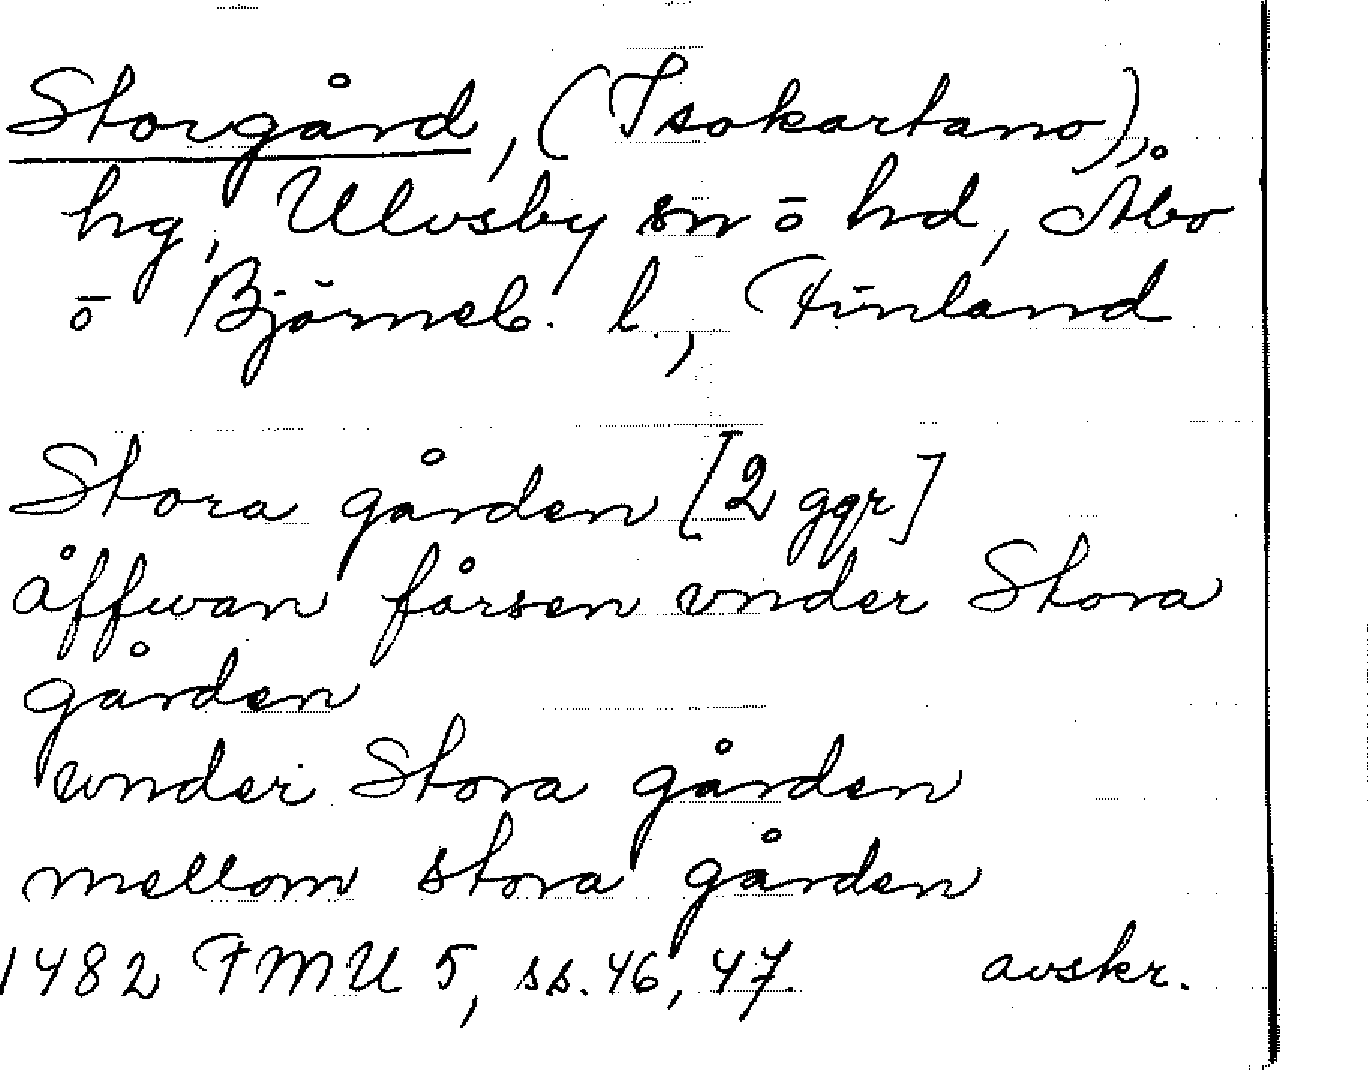 Storgård, (Isokartano),
hg, Ulvsby sn o hd, Åbo
o Björneb. l., Finland
Stora gården [2 ggr]
åffwan fårsen vnder Stora
gården
vnder Stora gården
mellom stora gården
1482 FMU 5, ss. 46, 47. avskr.